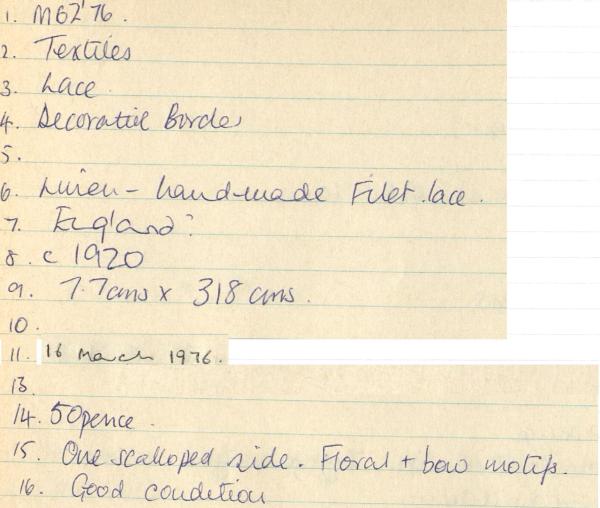 1. M62'76.
2. Textiles
3. Lace
4. Decorative Border
5.
6. Linen - handmade Filet lace.
7. England?
8. c 1920
9. 7.7cms x 318 cms.
10.
11. 16 March 1976.
13.
14. 50pence.
15. One scalloped side. Floral + bow motifs.
16. Good condition